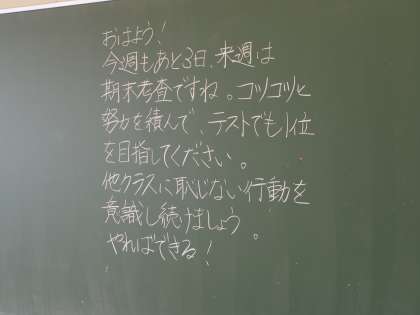 おはよう!
今週もあと3日、来週は
期末考査ですね。コツコツと
努力を積んで、テストでも1位
を目指してください。
他クラスに恥じない行動を
意識し続けましょう。
やればできる!